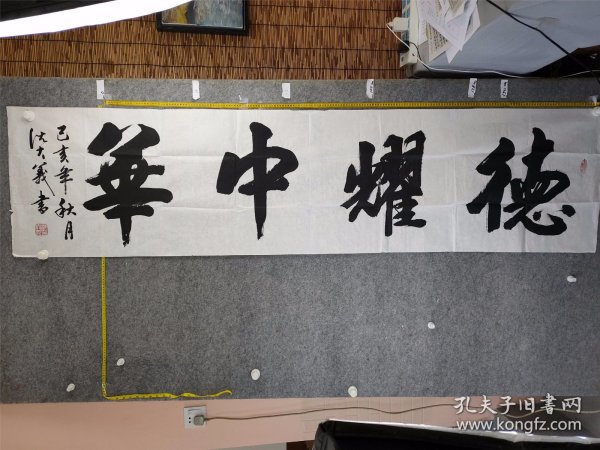 德耀中華
己亥年秋月
沈大義書
孔夫子旧書网
www.kongfz.com